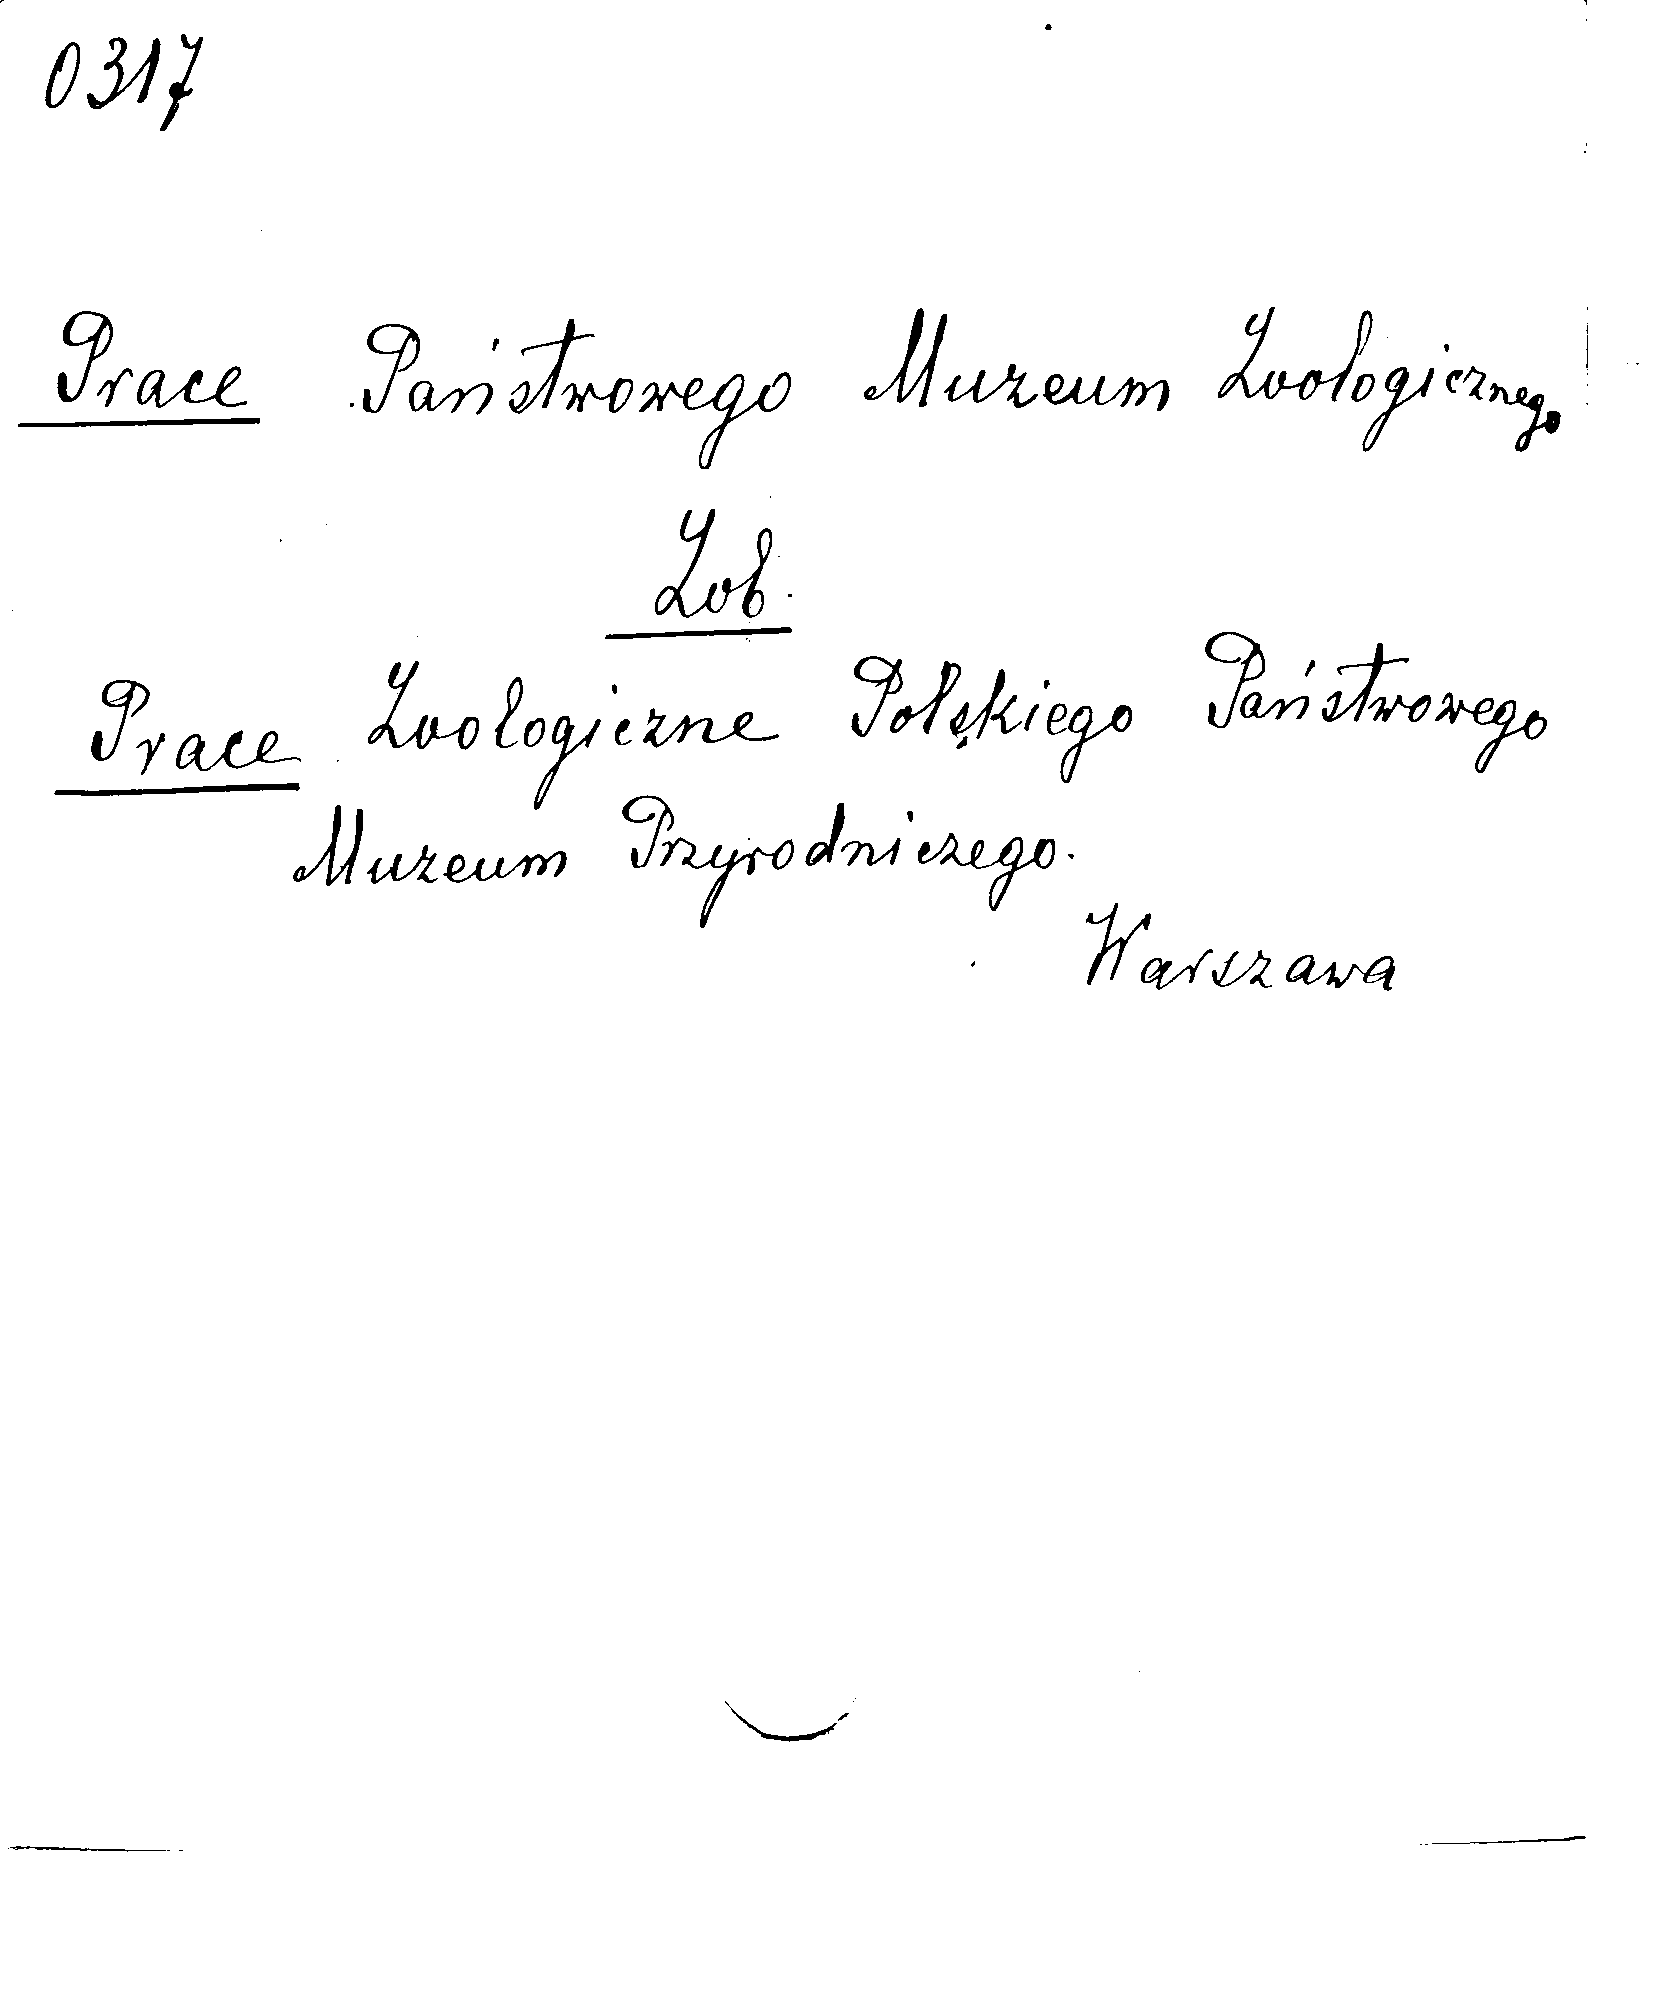 0317
Prace Państwowego Muzeum Zoologicznego
Zob.
Prace Zoologiczne Polskiego Państwowego
Muzeum Przyrodniczego.
Warszawa